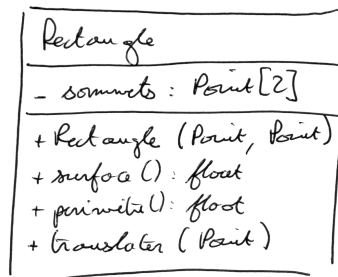 Rectangle
- sommets : Point [2]
+ Rectangle (Point, Point)
+ surface () : float
+ périmètre () : float
+ translater (Point)